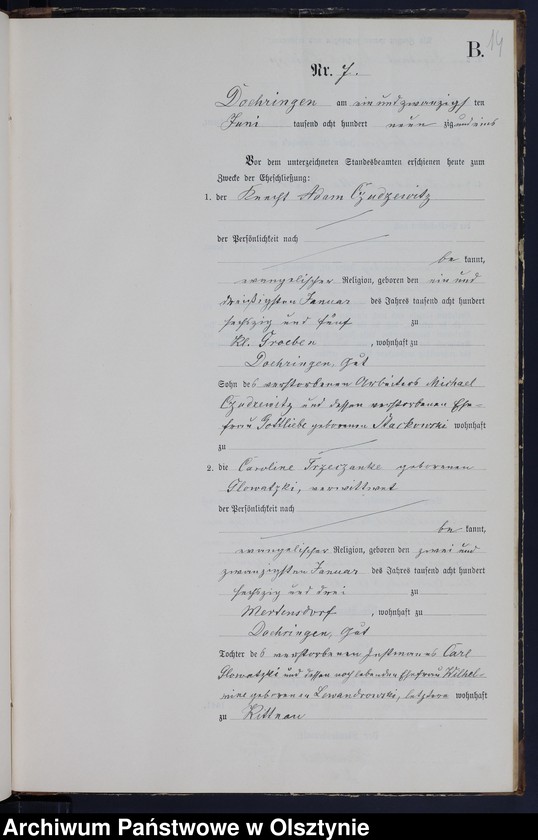 B.
14
Nr. 7.
Doehringen am ein und zwanzigsten
Juni tausend acht hundert neunzig und eins
Vor dem unterzeichneten Standesbeamten erschienen heute zum
Zwecke der Eheschließung:
1. der Knecht Adam Czudzewitz
der Persönlichkeit nach
bekannt,
evangelischer Religion, geboren den ein und
dreißigsten Januar des Jahres tausend acht hundert
sechszig und fünf zu
Kl. Groeben, wohnhaft zu
Doehringen, Gut
Sohn des verstorbenen Arbeiters Michael
Czudzewitz und dessen verstorbenen Ehe-
frau Gottliebe geborenen Starkowski wohnhaft
zu
2. die Caroline Trzeszanke geborenen
Glowatzki, verwittwet
der Persönlichkeit nach
bekannt,
evangelischer Religion, geboren den zwei und
zwanzigsten Januar des Jahres tausend acht hundert
sechszig und drei zu
Mertensdorf, wohnhaft zu
Doehringen, Gut
Tochter des verstorbenen Instmannes Carl
Glowatzki und dessen noch lebenden Ehefrau Wilhel-
mine geborenen Lewandrowski, letztere wohnhaft
zu Wittnau
Archiwum Państwowe w Olsztynie